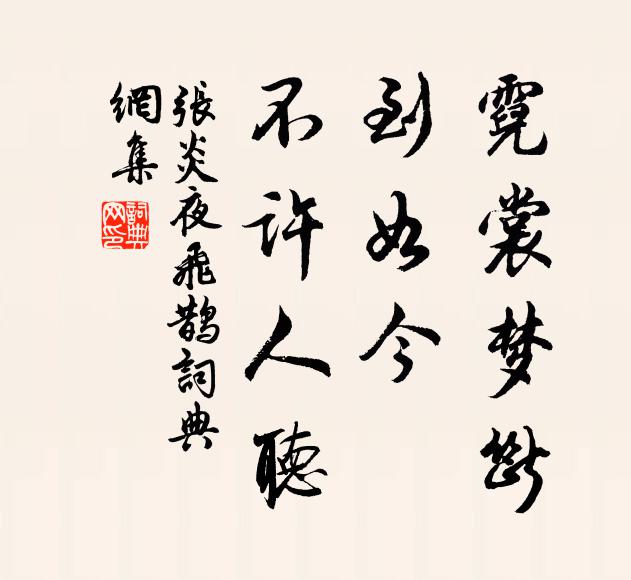 霓裳梦断
到如今
不许人聽
張炎夜飛鵲詞典
網集
詞典
网印